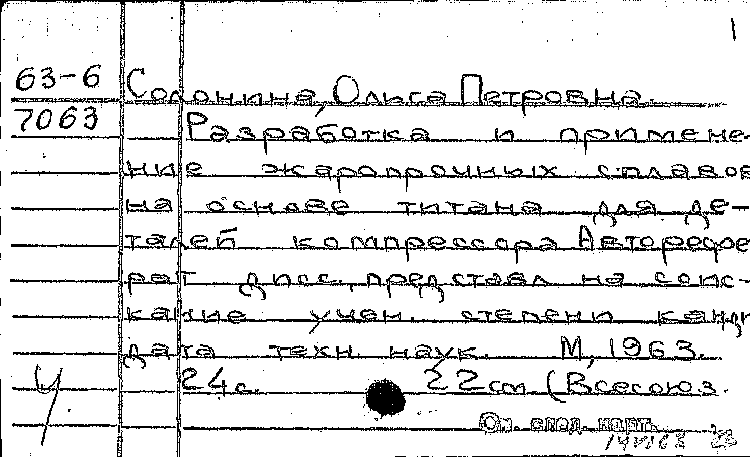 1
63-6 Солонина, Ольга Петровна.
7063 Разработка и примене-
ние жаропрочных сплавов
на основе титана для де-
талей компрессора Авторефе
рат дисс., представл на соис-
кание учен. степени канди
дата техн. наук. М, 1963.
24 с. 22 см (Всесоюз.
См. след. карт.